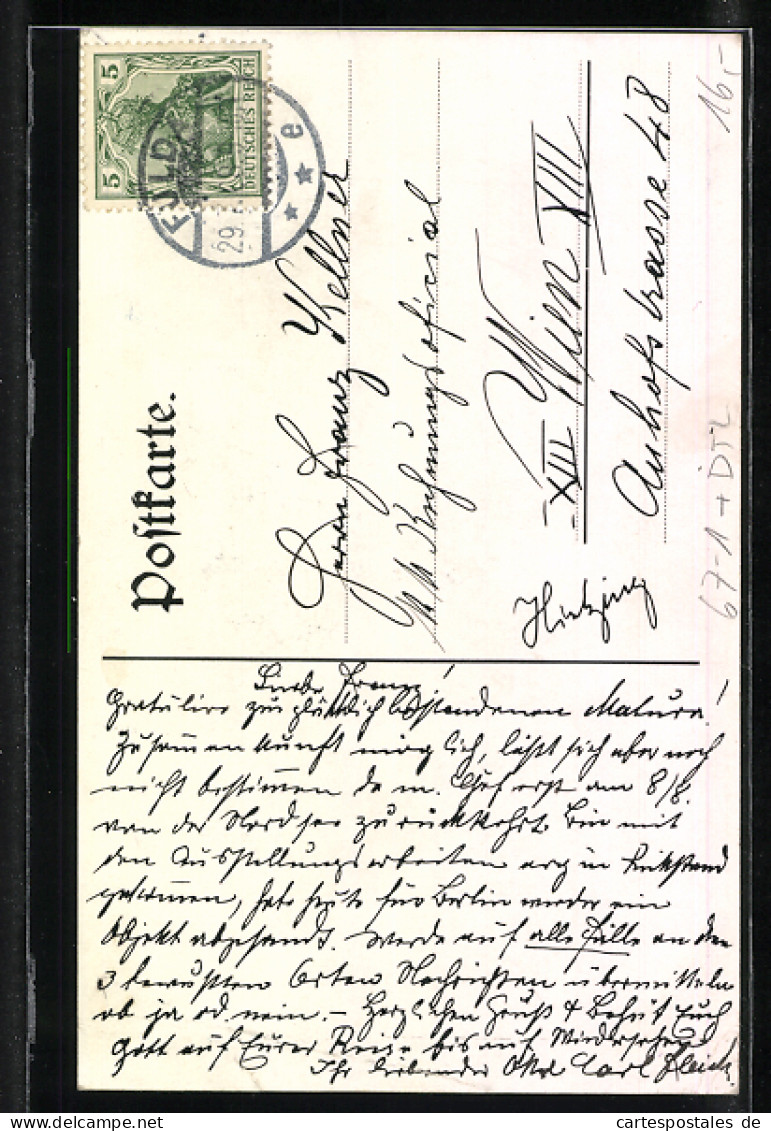 5
5
DEUTSCHES REICH
FULDA
29.
e
Postkarte.
Herrn Franz Kellner
Rechnungsoficial
XIII Wien XIII
Auhofstrasse 48
Hietzing
16,-
67-1 + D52
Lieber Franz!
Gratulire zur glücklich bestandenen Matura!
Zusammenkunft möglich, läßt sich aber noch
nicht bestimmen da m. Chef erst am 8/8.
von der Nordsee zurückkehrt. Bin mit
den Ausstellungsarbeiten arg in Rückstand
gekommen, habe heute für Berlin wieder ein
Objekt abgesandt. Werde auf alle Fälle an den
3 bewußten Orten Nachrichten übermitteln
ob ja od. nein. – Herzlichen Gruß & Behüt Euch
Gott auf Eurer Reise bis auf Wiedersehen
Ihr liebender Carl
cartespostales de